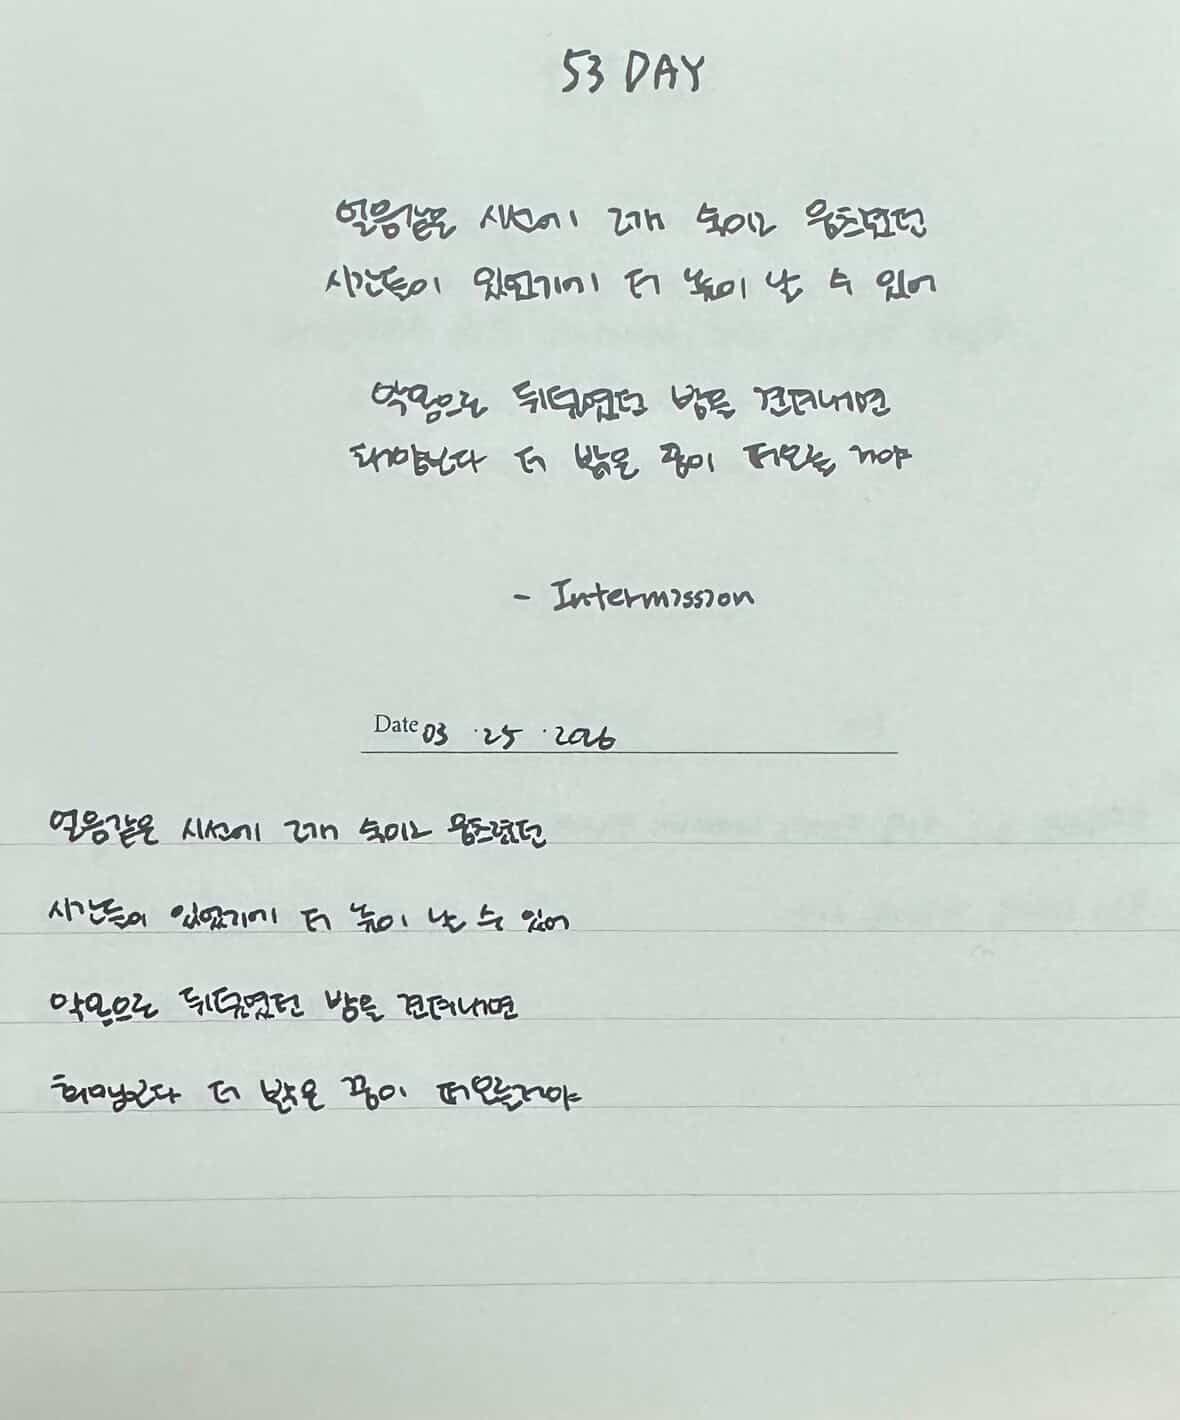 53 DAY
얼음같은 시선에 고개 숙이고 움츠렸던
시간들이 있었기에 더 높이 날 수 있어
악몽으로 뒤덮였던 밤을 견뎌내면
희미한 더 밝은 꿈이 떠오를 거야
- Intermission
Date 03 · 25 · 2026
얼음같은 시선에 고개 숙이고 움츠렸던
시간들이 있었기에 더 높이 날 수 있어
악몽으로 뒤덮였던 밤을 견뎌내면
더 밝은 꿈이 떠오를거야